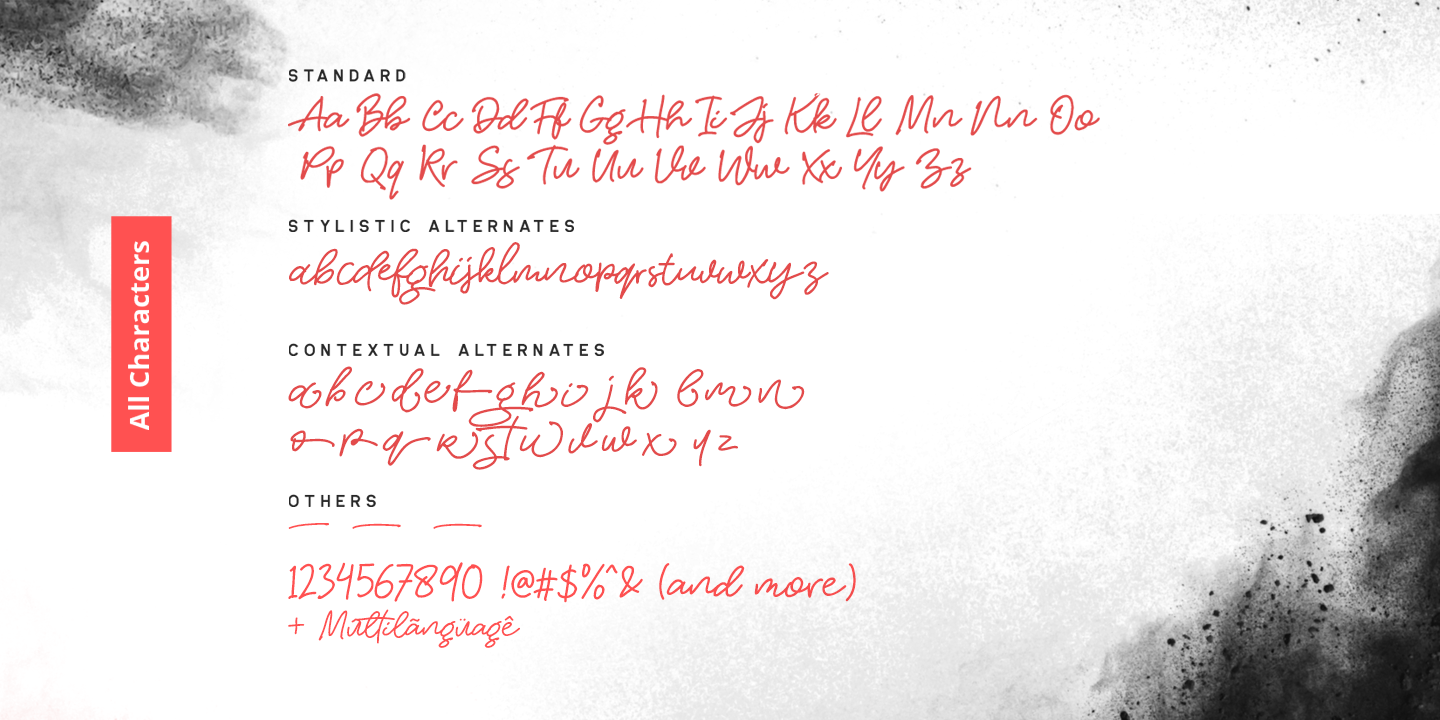 All Characters
STANDARD
Aa Bb Cc Dd Ff Gg Hh Ii Jj Kk Ll Mm Nn Oo
Pp Qq Rr Ss Tu Uu Vv Ww Xx Yy Zz
STYLISTIC ALTERNATES
abcdefghijklmnopqrstuvwxyz
CONTEXTUAL ALTERNATES
abcdefghi jk lmn
opqrstuvwx yz
OTHERS
1234567890 !@#$%^& (and more)
+ Multilãngüagê